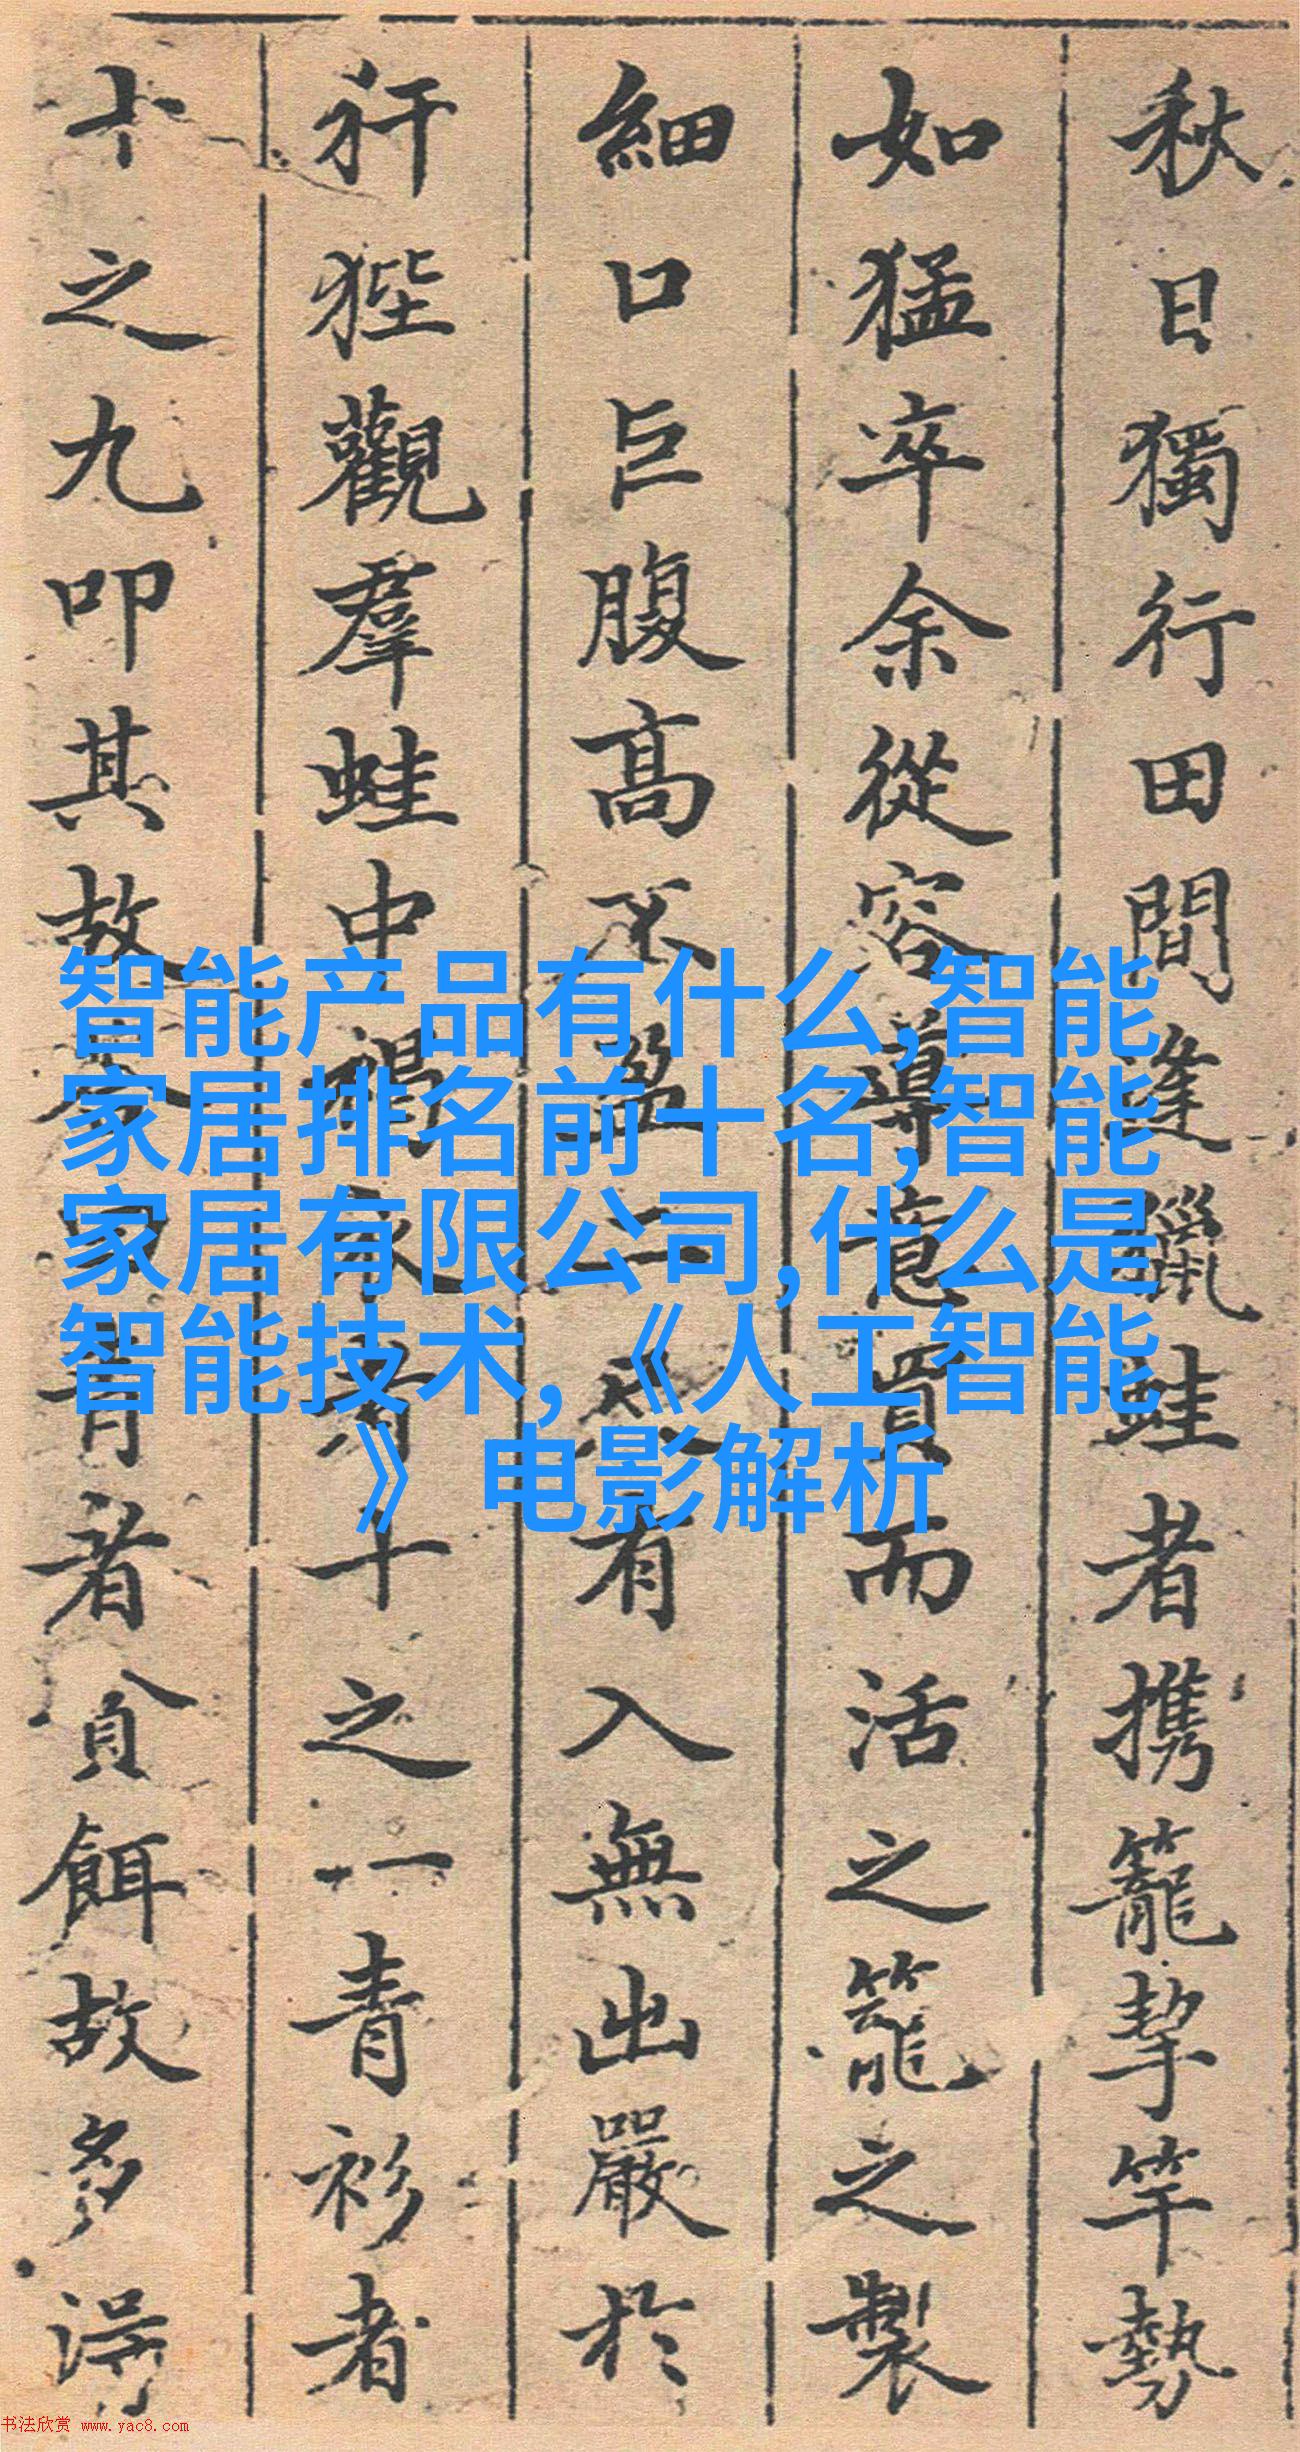 秋日獨行田間逢獵蛙者携籠挈竿勢
如猛卒余從容導意買而活之籠之製
細口巨腹高不盈二尺有入無出嚴於
犴狴觀羣蛙中褐衣者十之一青衫者
十之九叩其故
青者貪餌故多得
智能产品有什么,智能
家居排名前十名,智能
家居有限公司,什么是
智能技术,《人工智能
》 电影解析
书法欣赏 www.yac8.com